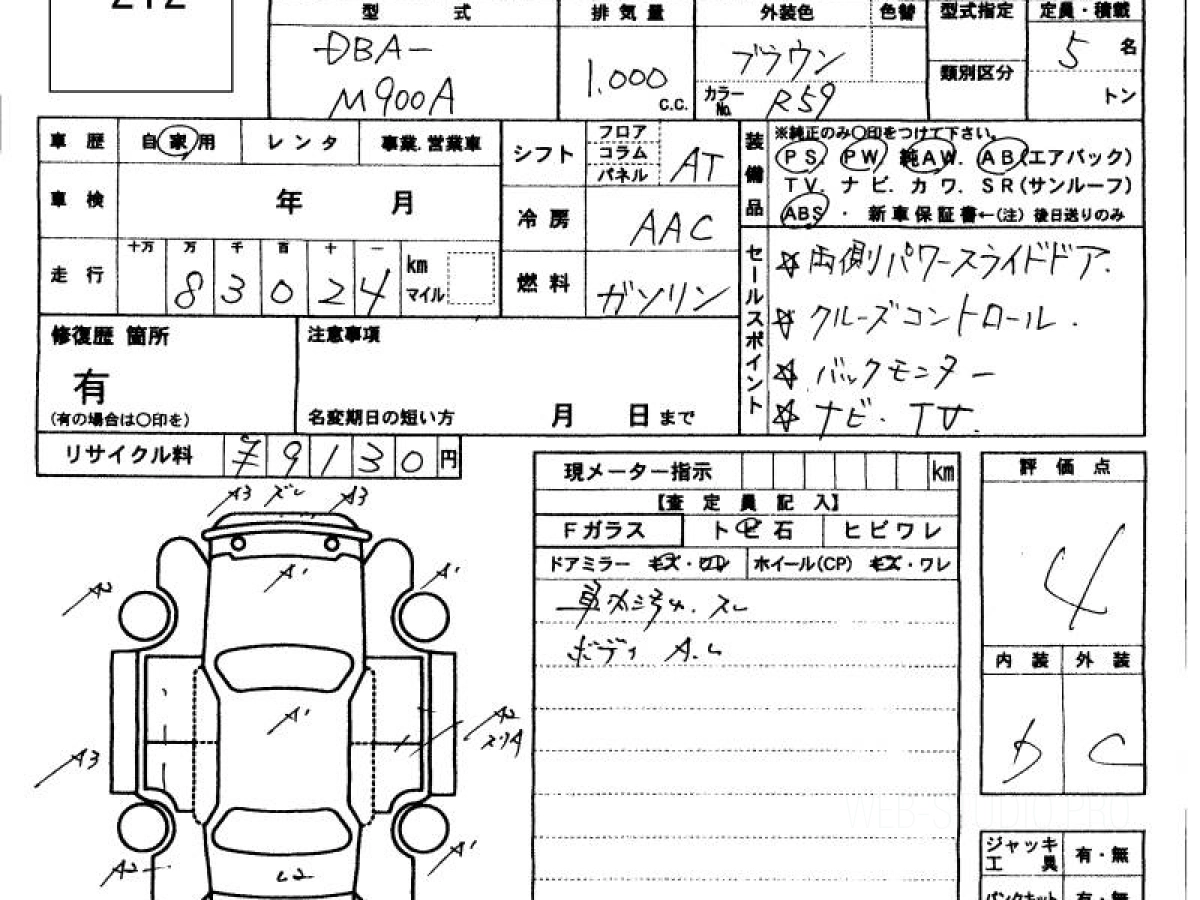 212
型式 排気量 外装色 色替 型式指定 定員・積載
DBA-
M900A
1.000 c.c.
ブラウン
カラーNo. R59
類別区分
5 名
トン
車歴 自家用 レンタ 事業.営業車
シフト フロア コラム パネル AT
装備品 ※純正のみ〇印をつけて下さい。
PS. PW. 純AW. AB(エアバック)
TV. ナビ. カワ. SR(サンルーフ)
ABS ・ 新車保証書←(注) 後日送りのみ
車検 年 月
冷房 AAC
走行 十万 万 千 百 十 一
8 3 0 2 4 km マイル
燃料 ガソリン
セールスポイント
☆両側パワースライドドア.
☆クルーズコントロール.
☆バックモニター
☆ナビ. TV.
修復歴 箇所
有
(有の場合は〇印を)
注意事項
名変期日の短い方 月 日まで
リサイクル料 9130円
現メーター指示 km
【査定員記入】
Fガラス トビ石 ヒビワレ
ドアミラー キズ・ワレ ホイール(CP) キズ・ワレ
スレ
ボディ A.
評価点
4
内装 外装
C
A3 ズレ A3
A1
A2
A1
A1
A2
スリA
A3
A2
A1
ジャッキ 工具 有・無
パンクキット 有・無
WEB-STUDIO.PRO